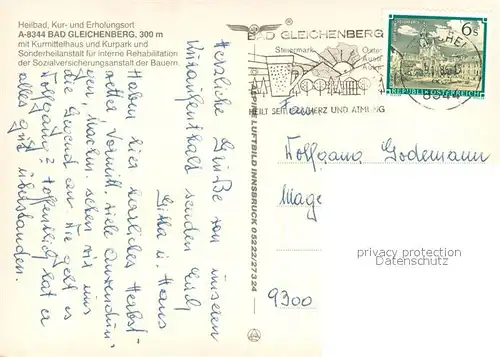 Heilbad, Kur- und Erholungsort
A-8344 BAD GLEICHENBERG, 300 m
mit Kurmittelhaus und Kurpark und
Sonderheilanstalt für interne Rehabilitation
der Sozialversicherungsanstalt der Bauern.
Herzliche Grüße von unserem
senden Euch
Gitta u. Hans
Haben hier herrliches Herbst-
wetter. Vormitt. viele Anwendun-
gen, Nachm. sehen wir uns
die Gegend an. Wie geht es
Wolfgang? Hoffentlich hat er
alles gut überstanden.
ALPINE LUFTBILD INNSBRUCK 05222/27324
BAD GLEICHENBERG
Steiermark
HEILT SEIT HERZ UND ATMUNG
6 S
REPUBLIK ÖSTERREICH
8344
Fam.
Wolfgang Godemann
9300
privacy protection
Datenschutz